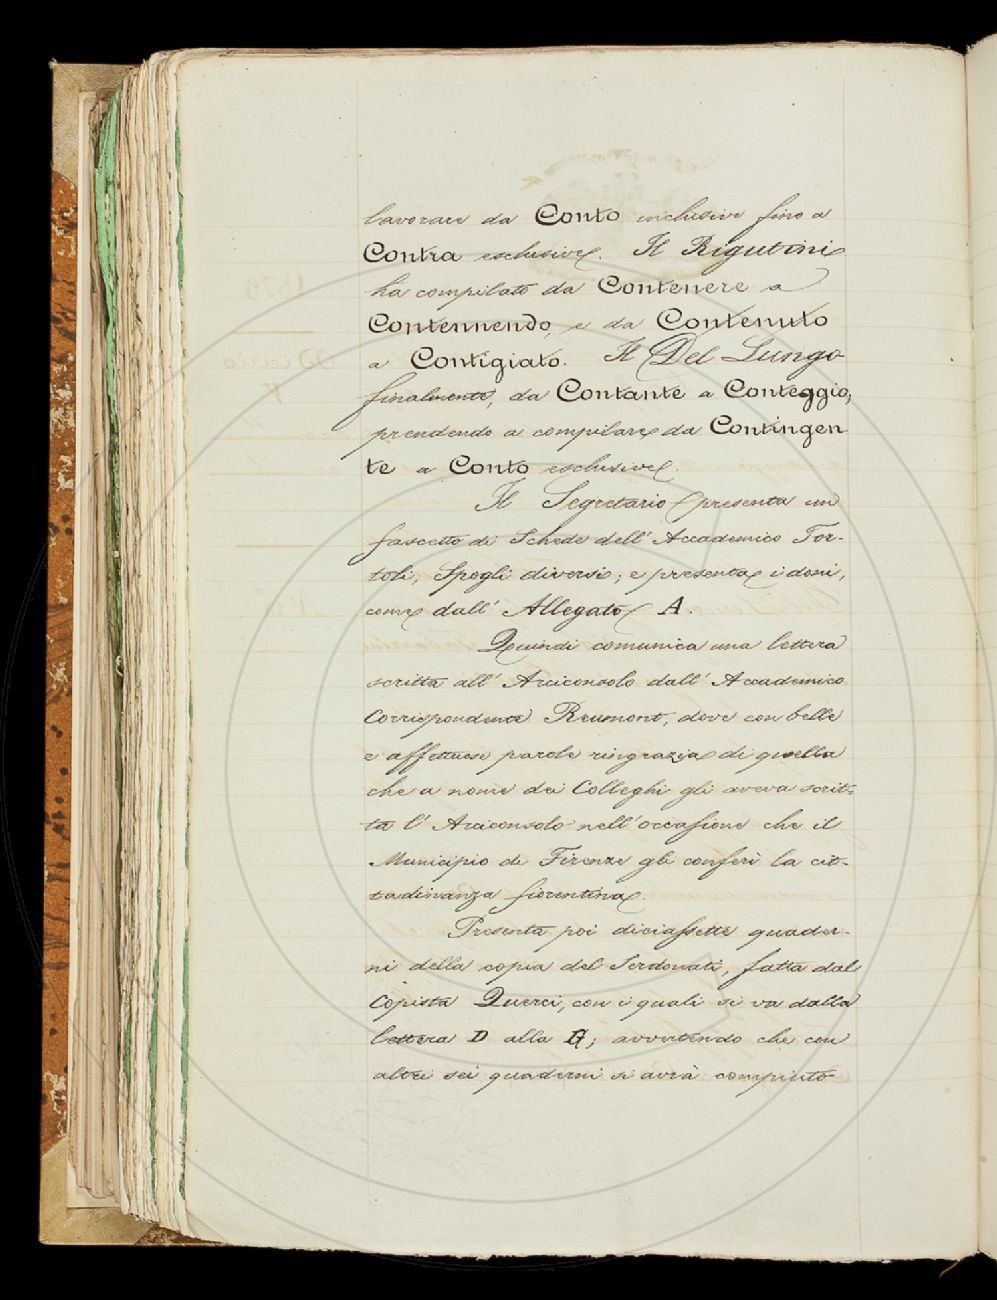 lavorare da Conto inclusive fino a
Contra esclusive. Il Rigutini
ha compilato da Contenere a
Contennendo, e da Contenuto
a Contigiato. Il Del Lungo
finalmente, da Contante a Conteggio,
prendendo a compilare da Contingen
te a Conto esclusive.
Il Segretario presenta un
fascetto di Schede dell' Accademico Tor-
toli, Spogli diversi; e presenta i doni,
come dall' Allegato A.
Quindi comunica una lettera
scritta all' Arciconsolo dall' Accademico
Corrispondente Reumont, dove con belle
e affettuose parole ringrazia di quella
che a nome dei Colleghi gli aveva scrit-
ta l' Arciconsolo nell' occasione che il
Municipio di Firenze gli conferì la cit-
tadinanza fiorentina.
Presenta poi diciassette quader-
ni della copia del Serdonati, fatta dal
Copista Querci, con i quali si va dalla
lettera D alla G; avvertendo che con
altri sei quaderni si avrà compiuto
1876
Diario